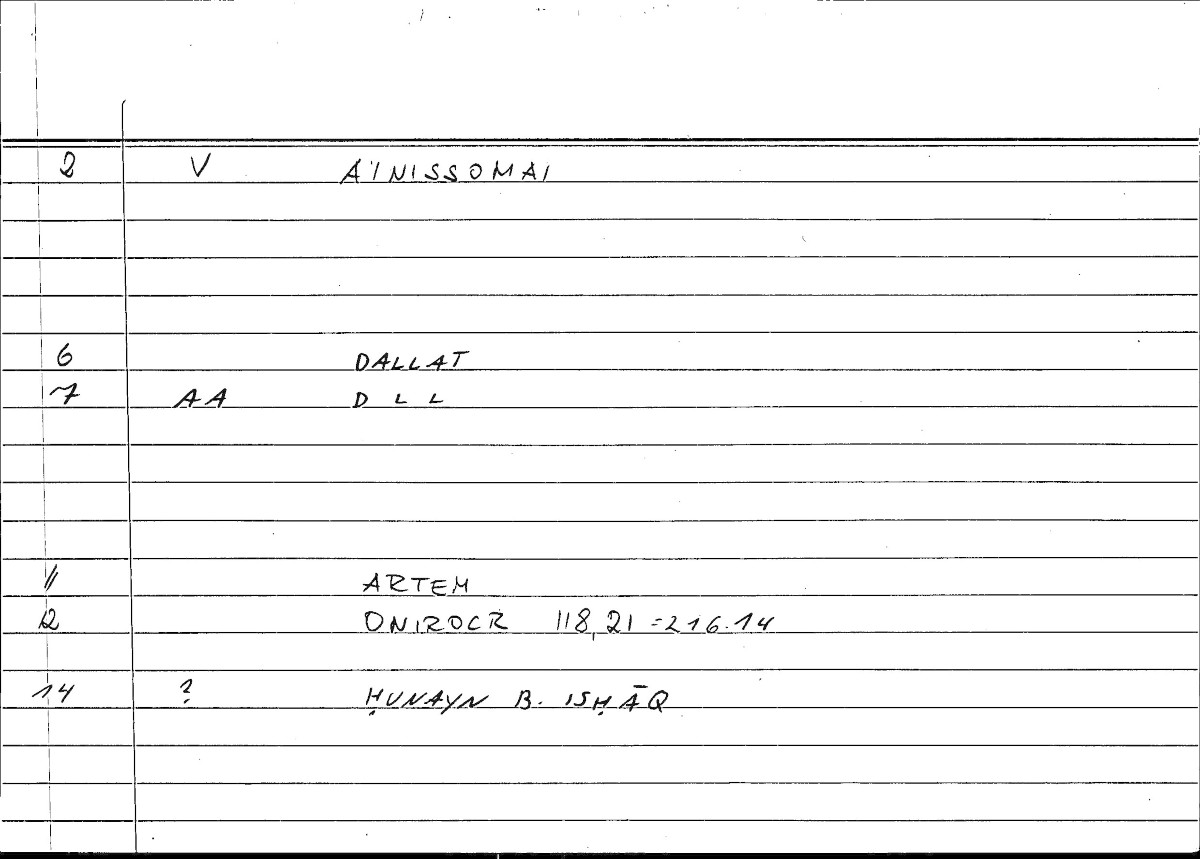 2 V A'INISSOMAI
6 DALLAT
7 AA D L L
11 ARTEM
12 ONIROCR 118,21 =216.14
14 ? ḤUNAYN B. ISḤĀQ